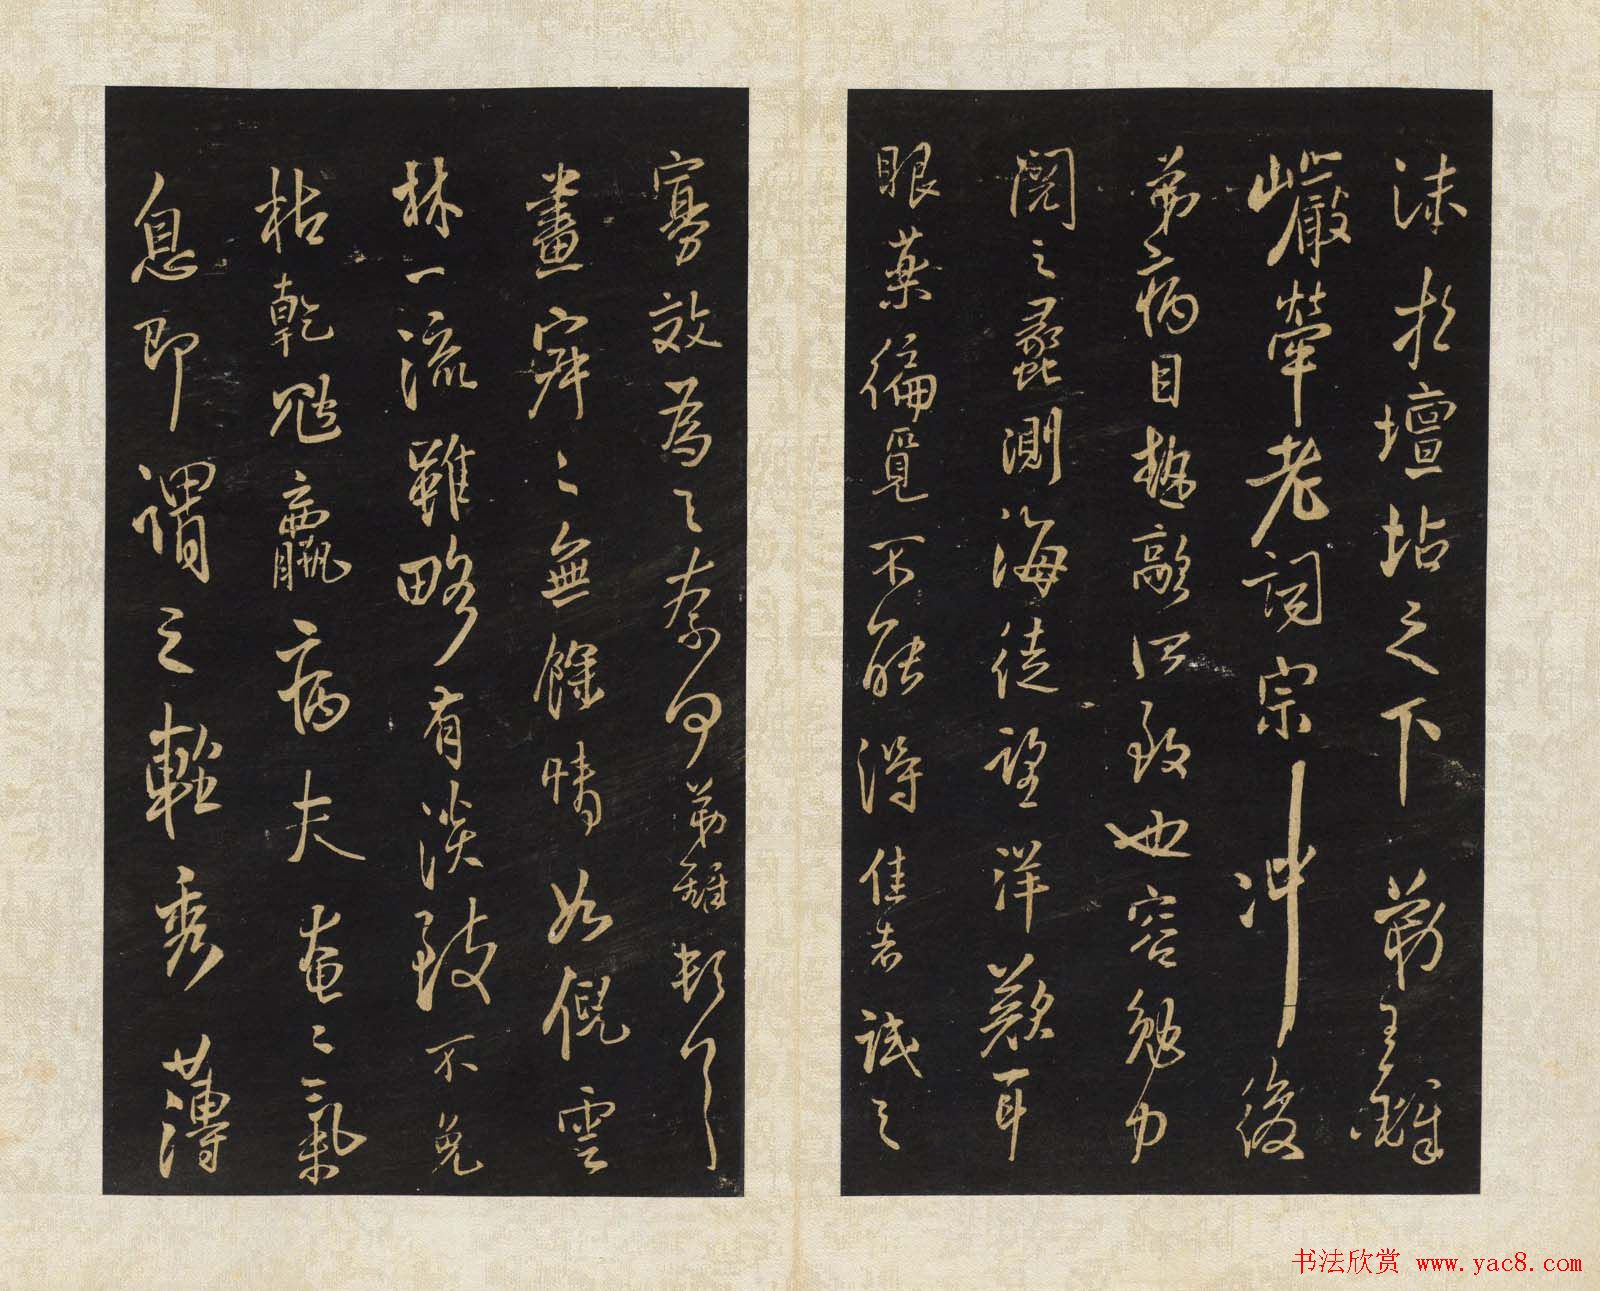 沫於壇坫之下弟王鐸
巖犖老詞宗 冲 後
弟病目 敲 致也容勉力
閱之蠡測海徒望洋歎耳
眼藥徧覓不能得佳者誠之
寡效為之奈何 弟鐸頓首
畫寂寂無餘情如倪雲
林一流雖略有淡致不免
枯乾尫羸病夫奄奄氣
息即謂之輕秀薄
书法欣赏 www.yac8.com